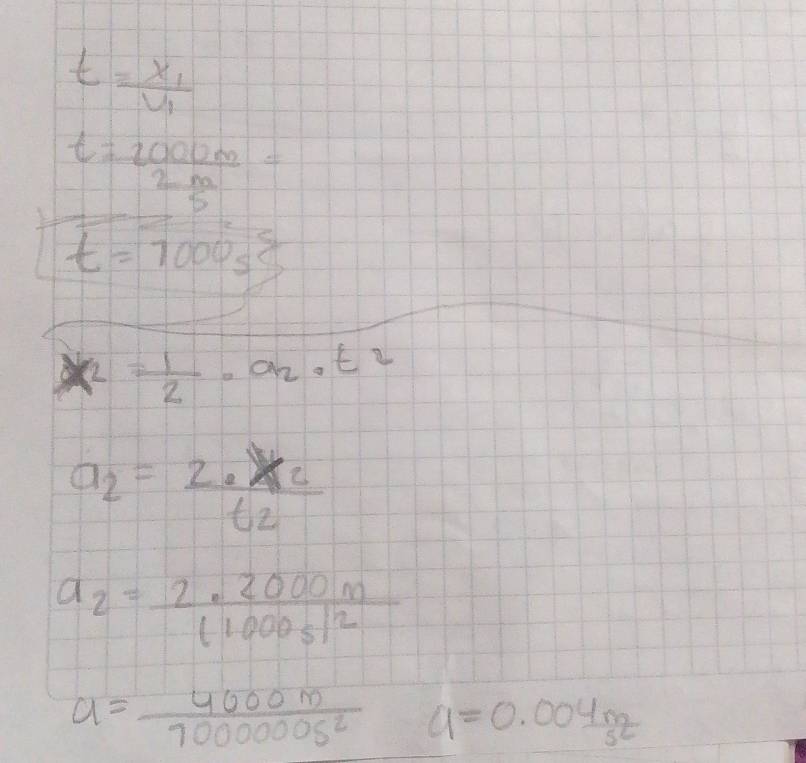 t = x₁/v₁
t = 2000m/2 m/s =
t = 1000s
x2 = 1/2 . a₂ . t²
a₂ = 2 . x₂/t2
a₂ = 2 . 2000m/(1000s)²
a = 4000m/1000000s² a = 0.004 m/s²